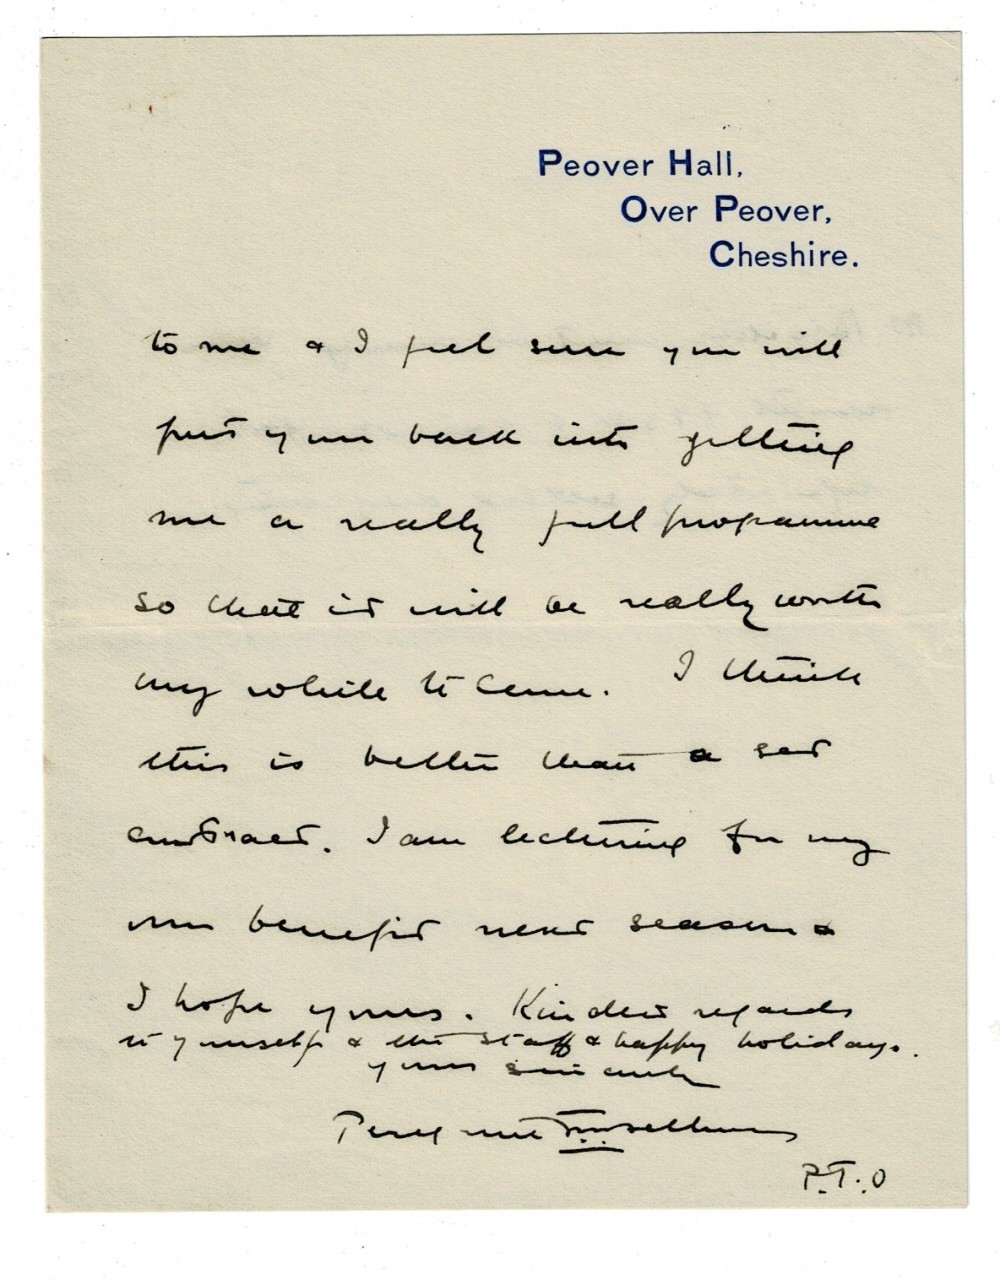 Peover Hall,
Over Peover,
Cheshire.
to me & I feel sure you will
put your back into getting
me a really full programme
so that it will be really worth
my while to come. I think
this is better than a set
contract. I am lecturing for my
own benefit next season &
I hope yours. Kindest regards
to yourself & the staff & happy holidays.
yours sincerely
Peregrine
P.T.O